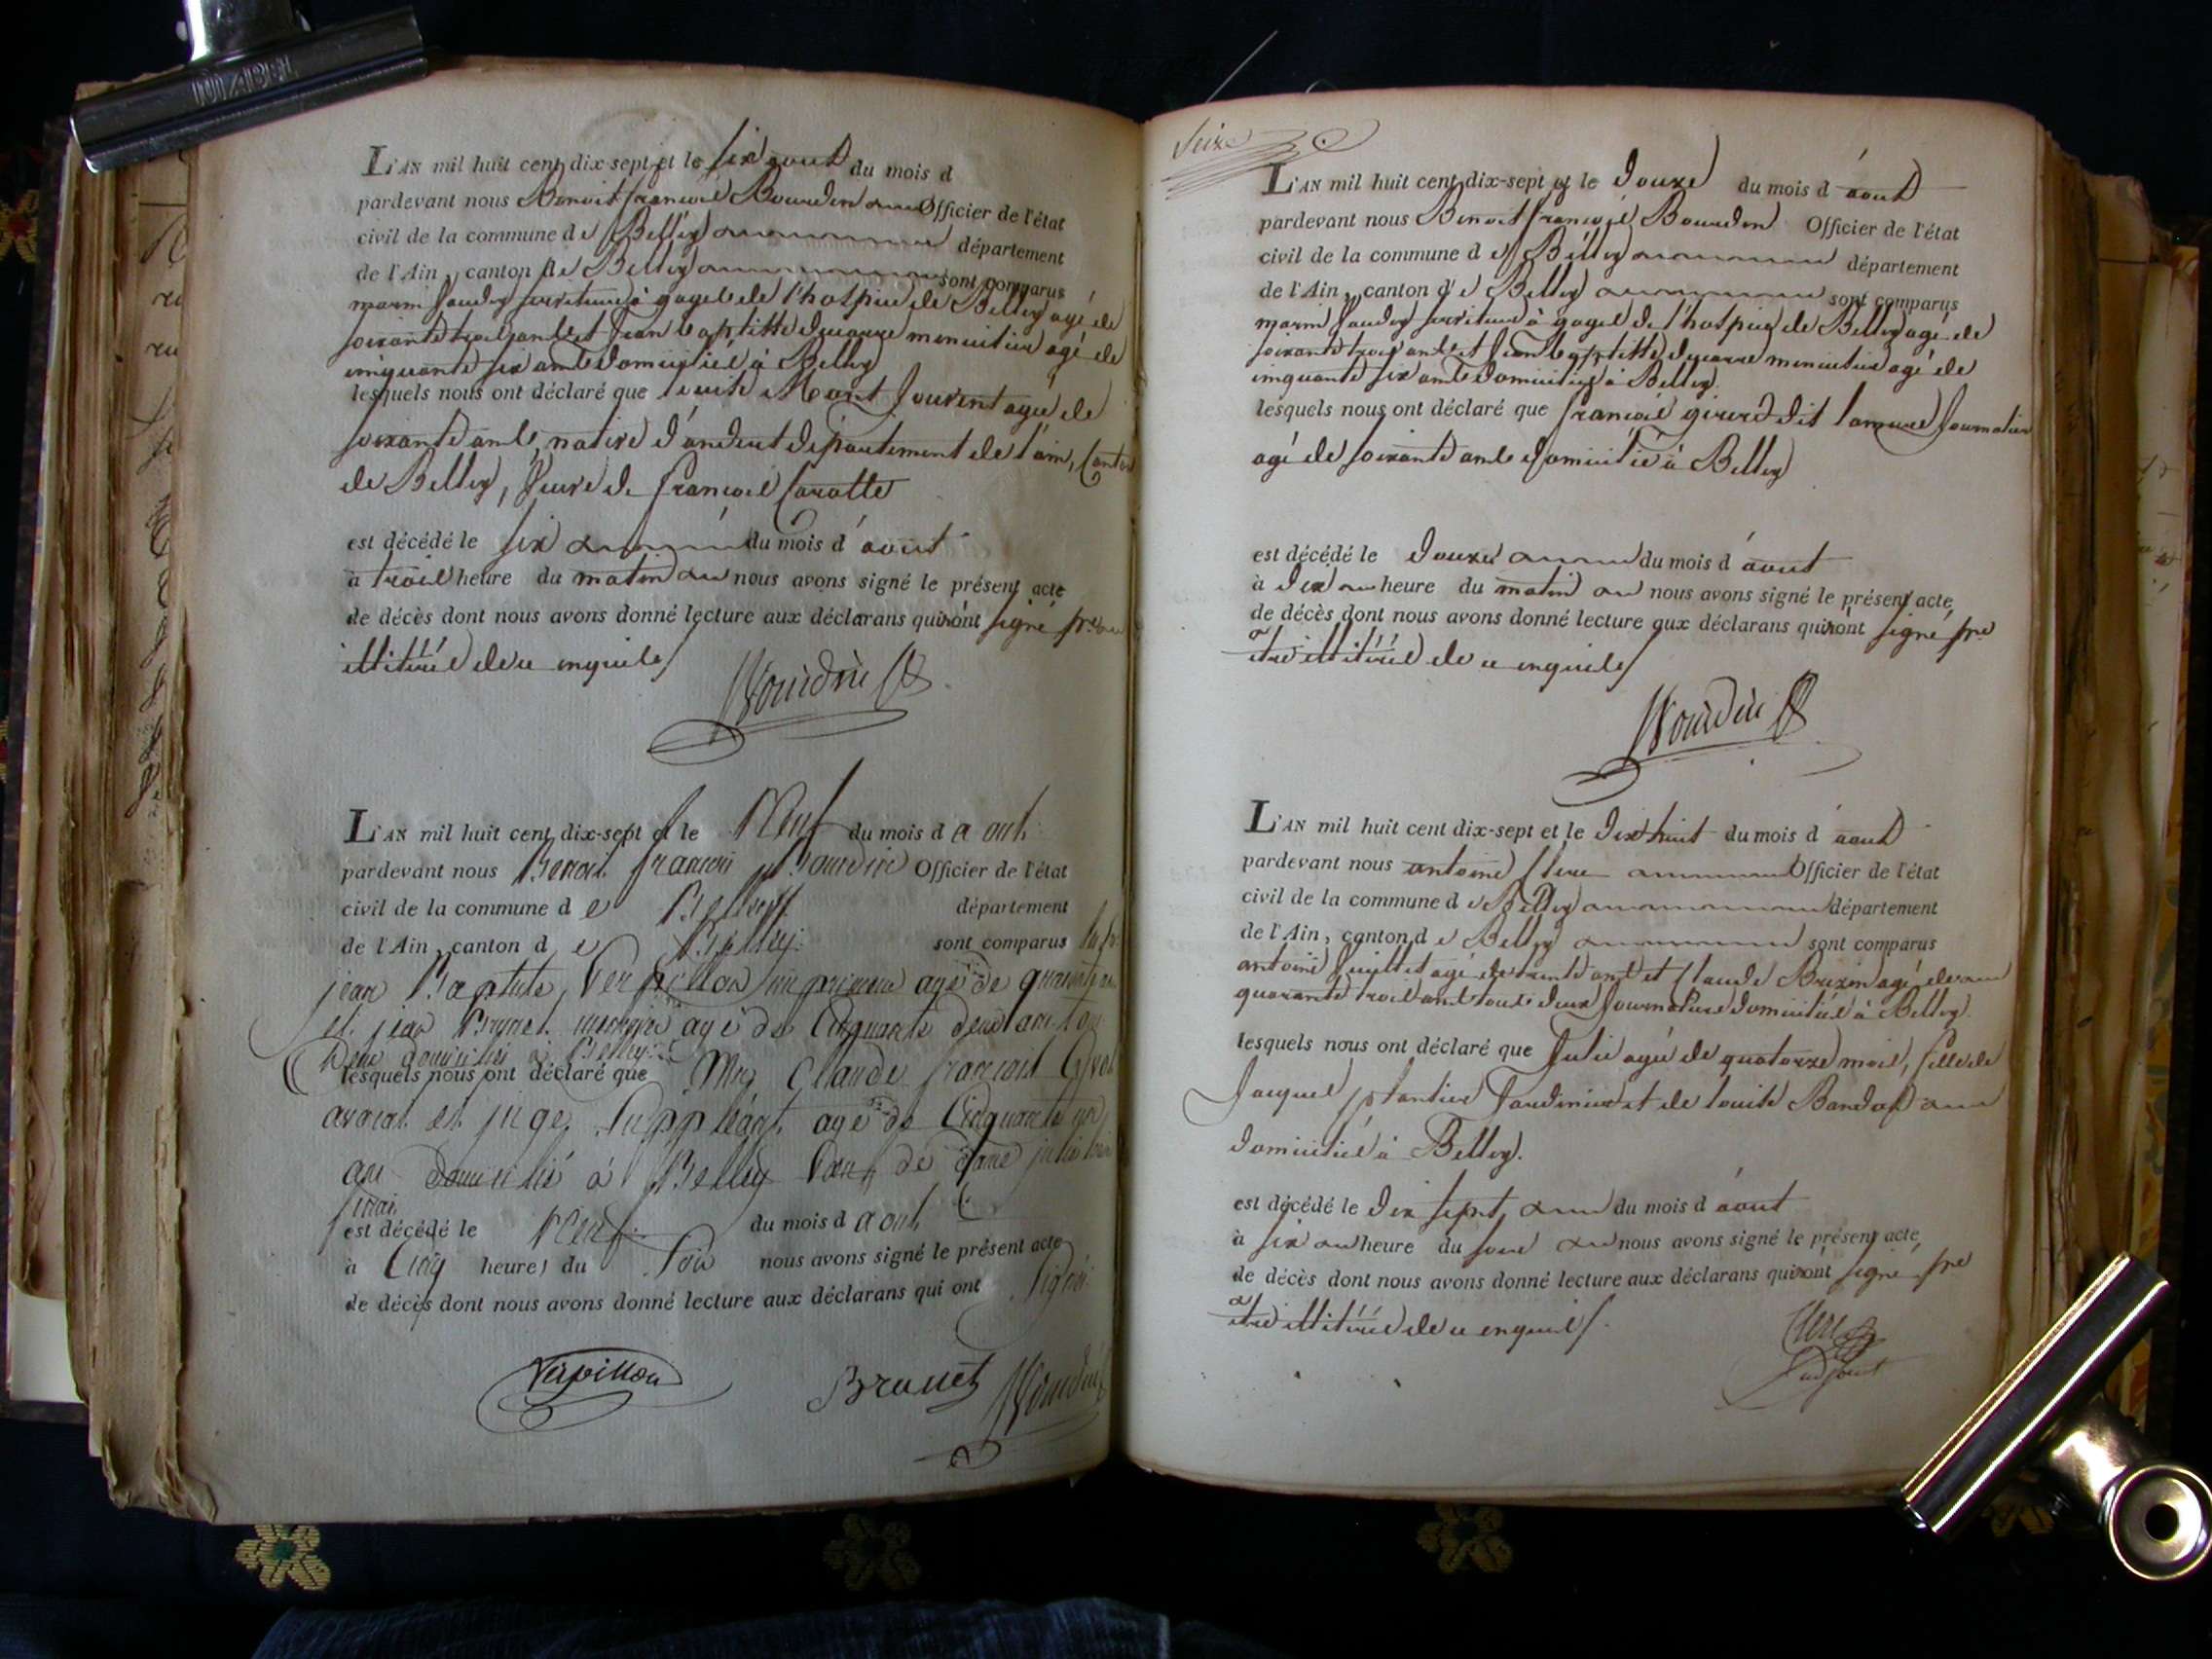 L'AN mil huit cent dix-sept et le six aout du mois d
pardevant nous Benoit françois Bourdin Officier de l'état
civil de la commune de Belley département
de l'Ain, canton de Belley sont comparus
marin serviteur à gages de l'hospice de Belley agé de
soixante trois ans et Jean baptiste menuisier agé de
cinquante six ans domicilié à Belley
lesquels nous ont déclaré que Louise agée de
soixante ans, native d'andert département de l'ain, Canton
de Belley, veuve de françois Caratte
est décédé le six du mois d'aout
à trois heure du matin nous avons signé le présent acte
de décès dont nous avons donné lecture aux déclarans qui n'ont signé pr
illitérés de ce enquis
Bourdin
L'AN mil huit cent dix-sept et le Neuf du mois d aout
pardevant nous Benoit françois Bourdin Officier de l'état
civil de la commune de Belley département
de l'Ain, canton de Belley sont comparus
jean Baptiste Verpillon imprimeur agé de quarante
et jean Brunet agé de Cinquante deux ans
Deux domiciliés à Belley
lesquels nous ont déclaré que Mr Claude françois
avocat et juge Suppléant agé de Cinquante un
an domicilié à Belley de Dame
est décédé le Neuf du mois d aout
à Cinq heures du Soir nous avons signé le présent acte
de décès dont nous avons donné lecture aux déclarans qui ont Signé
Verpillon Brunet Bourdin
Seize
L'AN mil huit cent dix-sept et le douze du mois d'aout
pardevant nous Benoit françois Bourdin Officier de l'état
civil de la commune de Belley département
de l'Ain, canton de Belley sont comparus
marin serviteur à gages de l'hospice de Belley agé de
soixante trois ans et Jean baptiste menuisier agé de
cinquante six ans domicilié à Belley
lesquels nous ont déclaré que françois girerd dit lamure Journalier
agé de soixante ans domicilié à Belley
est décédé le douze du mois d'aout
à dix heure du matin nous avons signé le présent acte
de décès dont nous avons donné lecture aux déclarans qui n'ont signé pr
etre illitérés de ce enquis
Bourdin
L'AN mil huit cent dix-sept et le dix huit du mois d'aout
pardevant nous antoine Clerc Officier de l'état
civil de la commune de Belley département
de l'Ain, canton de Belley sont comparus
antoine agé de trente ans et Claude agé de
quarante trois ans tous deux Journaliers domiciliés à Belley
lesquels nous ont déclaré que Julie agée de quatorze mois, fille de
Jacques plantier Jardinier et de louise
domicilié à Belley.
est décédé le dix sept du mois d'aout
à six heure du soir nous avons signé le présent acte
de décès dont nous avons donné lecture aux déclarans qui n'ont signé pr
etre illitérés de ce enquis
Clerc